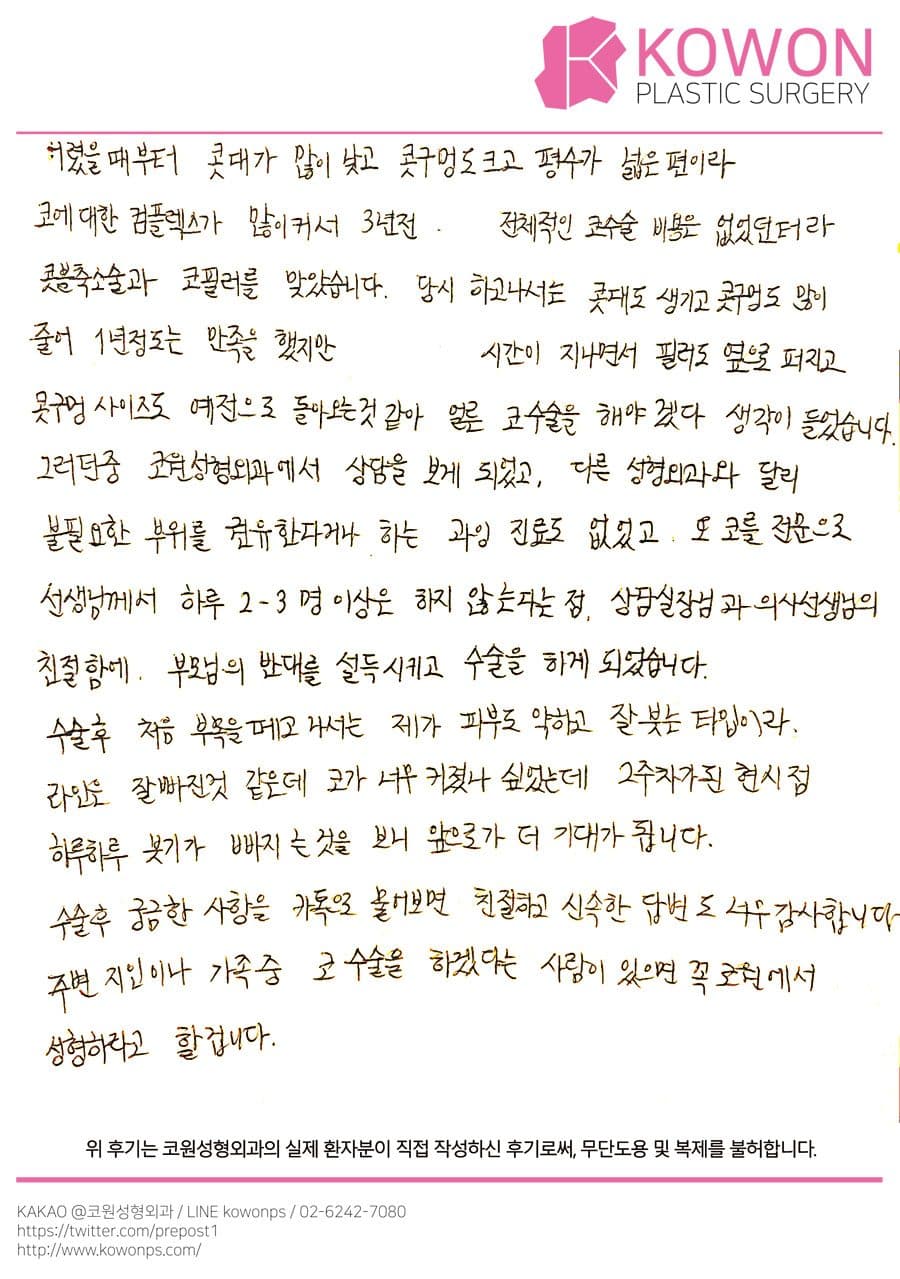 KOWON
PLASTIC SURGERY
어렸을때부터 콧대가 많이 낮고 콧구멍도크고 평수가 넓은편이라
코에대한 컴플렉스가 많이커서 3년전. 전체적인 코수술 비용은 없었던터라
콧볼축소술과 코필러를 맞았습니다. 당시 하고나서는 콧대도 생기고 콧구멍도 많이
줄어 1년정도는 만족을 했지만 시간이 지나면서 필러도 옆으로 퍼지고
콧구멍 사이즈도 예전으로 돌아오는것 같아 얼른 코수술을 해야겠다 생각이 들었습니다.
그러던중 코원성형외과에서 상담을 보게 되었고, 다른 성형외과와 달리
불필요한 부위를 권유한다거나 하는 과잉 진료도 없었고. 또 코를 전문으로
선생님께서 하루 2-3명이상은 하지 않는다는 점, 상담실장님과 의사선생님의
친절함에. 부모님의 반대를 설득시키고 수술을 하게 되었습니다.
수술후 처음 부목을떼고 나서는 제가 피부도 약하고 잘붓는 타입이라.
라인은 잘빠진것 같은데 코가 너무 커졌나 싶었는데 2주차가된 현시점
하루하루 붓기가 빠지는것을 보니 앞으로가 더 기대가 됩니다.
수술후 궁금한 사항을 카톡으로 물어보면 친절하고 신속한 답변도 너무감사합니다
주변 지인이나 가족중 코 수술을 하겠다는 사람이 있으면 꼭 코원에서
성형하라고 할겁니다.
위 후기는 코원성형외과의 실제 환자분이 직접 작성하신 후기로써, 무단도용 및 복제를 불허합니다.
KAKAO @코원성형외과 / LINE kowonps / 02-6242-7080
https://twitter.com/prepost1
http://www.kowonps.com/